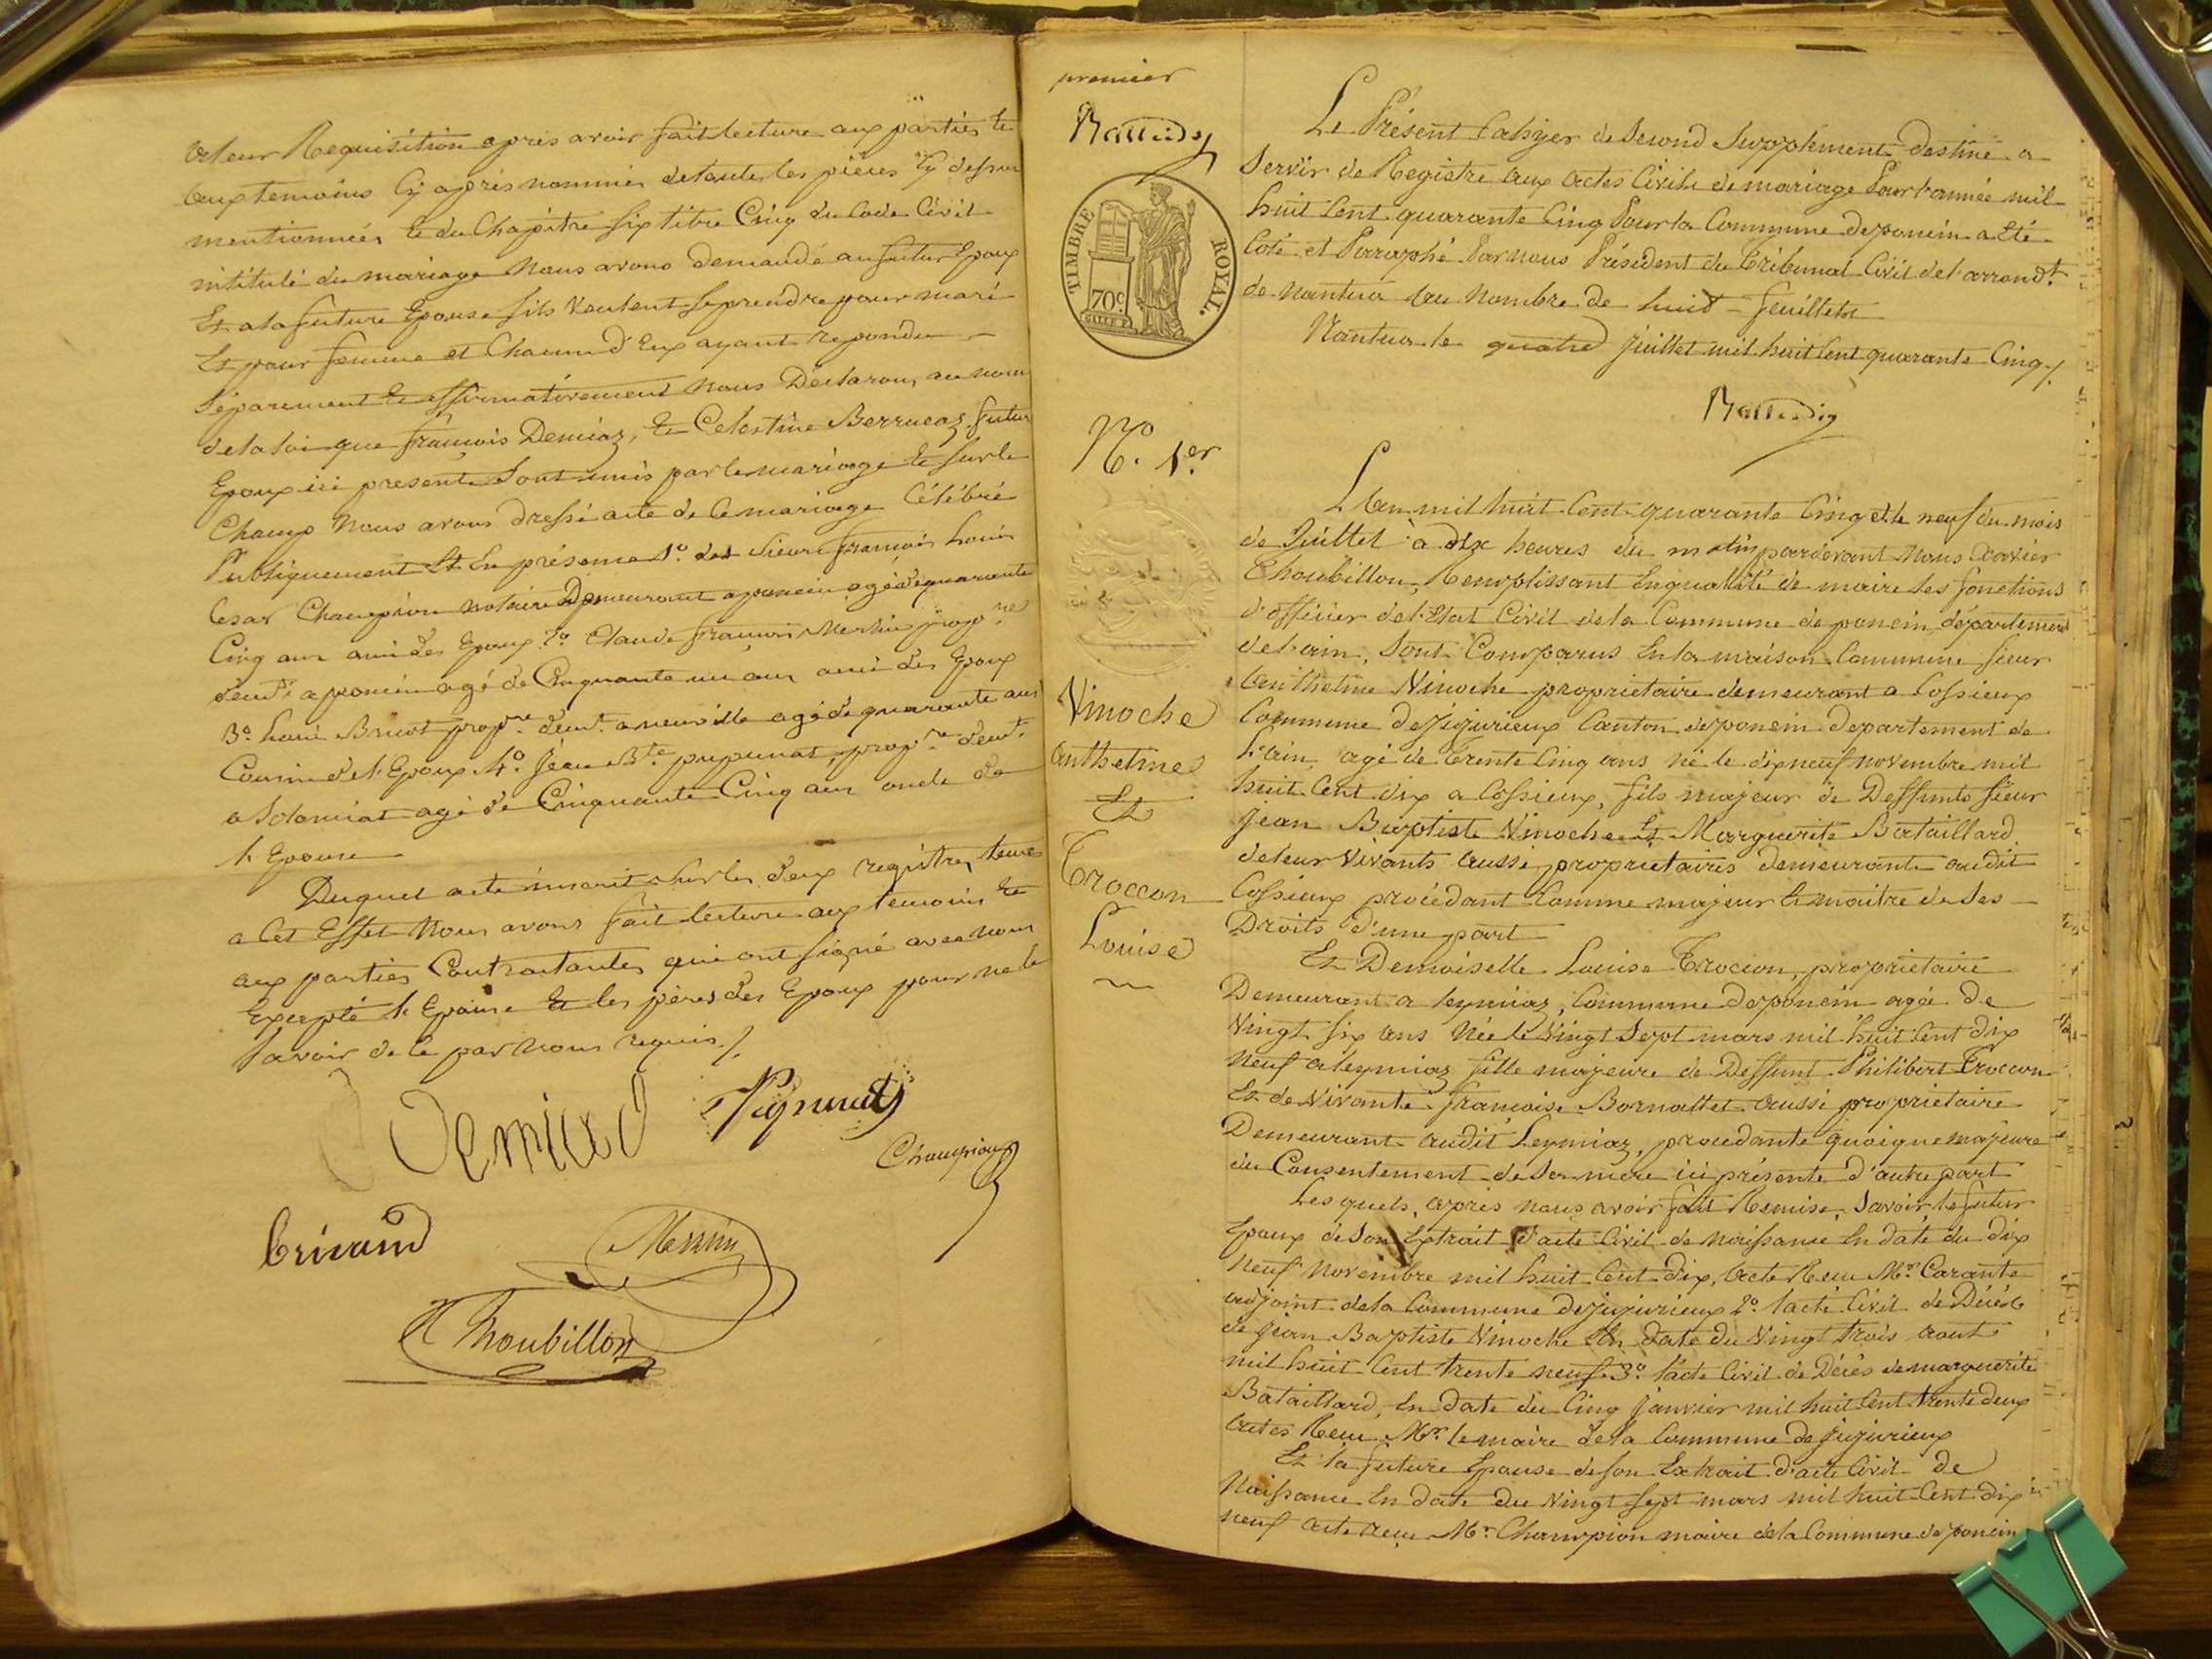 et leur Requisition après avoir fait lecture aux parties et
aux temoins cy après nommés de toutes les pièces cy dessus
mentionnées et du Chapitre six titre Cinq du Code Civil
intitulé du mariage Nous avons demandé au futur Epoux
Et a la future Epouse s'ils veulent se prendre pour mari
Et pour femme et Chacun d'Eux ayant repondu
Séparement Et affirmativement Nous Déclarons au nom
de la loi que françois Demiaz, Et Celestine Berrucaz futurs
Epoux ici presents Sont unis par le mariage Et sur le
Champ Nous avons dressé acte de Ce mariage Célébré
Publiquement Et En présence 1º. des Sieurs françois Louis
Cesar Champion notaire Demeurant a poncin agé de quarante
Cinq ans ami des Epoux 2º Claude françois Merlin prop.re
demt. a poncin agé de Cinquante un ans ami des Epoux
3º. Louis Bruot propre. demt. a neuville agé de quarante ans
Cousin de l'Epoux 4º. Jean Bte. pupunat, propre. demt.
a Solomiat agé de Cinquante Cinq ans oncle de
l'Epouse
Duquel acte inscrit sur les deux registres tenus
a Cet Effet Nous avons fait lecture aux temoins Et
aux parties Contractantes qui ont signé avec nous
Excepté l'Epouse Et les pères des Epoux pour ne le
Savoir de Ce par Nous requis /.
Demiaz
Champion
Merlin
Thoubillon
premier
TIMBRE ROYAL.
70c.
Le Présent Cahyer de Second Supplement destiné a
Servir de Registre aux actes Civils de mariage Pour l'année mil
huit Cent quarante Cinq Pour la Commune de poncin a Eté
Coté et Parraphé Par nous Président du Tribunal Civil de l'arrondt.
de nantua au Nombre de huit feuillets
Nantua le quatre Juillet mil huit Cent quarante Cinq /.
Nº. 1er
Vinoche
anthelme
Et
Troccon
Louise
L'an mil huit Cent quarante Cinq et le neuf du mois
de Juillet à dix heures du matin pardevant Nous Xavier
Thoubillon, Remplissant En qualité de maire les fonctions
d'officier de l'Etat Civil de la Commune de poncin, département
de l'ain, Sont Comparus En la maison Commune Sieur
Anthelme Vinoche propriétaire demeurant a Cossieux
Commune de Jujurieux Canton de poncin departement de
L'ain, agé de trente Cinq ans né le dix neuf novembre mil
huit Cent dix a Cossieux, fils majeur de Deffunts Sieur
Jean Baptiste Vinoche Et Marguerite Bataillard
de leur Vivants aussi propriétaires demeurants audit
Cossieux procédant Comme majeur Et maitre de Ses
Droits d'une part
Et Demoiselle Louise Troccon, propriétaire
Demeurant a leymiaz, Commune de poncin agée de
Vingt Six ans Née le Vingt Sept mars mil huit Cent dix
Neuf a leymiaz fille majeure de Deffunt Philibert Troccon
Et de Vivante françoise Bornattet aussi propriétaire
Demeurant audit Leymiaz, procédante quoique majeure
du Consentement de Sa mere ici présente d'autre part
Lesquels, après nous avoir fait Remise, Savoir le futur
Epoux de Son Extrait d'acte Civil de naissance En date du dix
Neuf Novembre mil huit Cent dix, acte Recu Mr. Carante
adjoint de la Commune de jujurieux 2º. l'acte Civil de Décès
de Jean Baptiste Vinoche En date du Vingt trois aout
mil huit Cent trente neuf 3º. l'acte Civil de Décès de marguerite
Bataillard, En date du Cinq Janvier mil huit Cent trente deux
actes Recu Mr. le maire de la Commune de jujurieux
Et la future Epouse de son Extrait d'acte Civil de
Naissance En date du Vingt Sept mars mil huit Cent dix
neuf acte recu Mr. Champion maire de la Commune de poncin